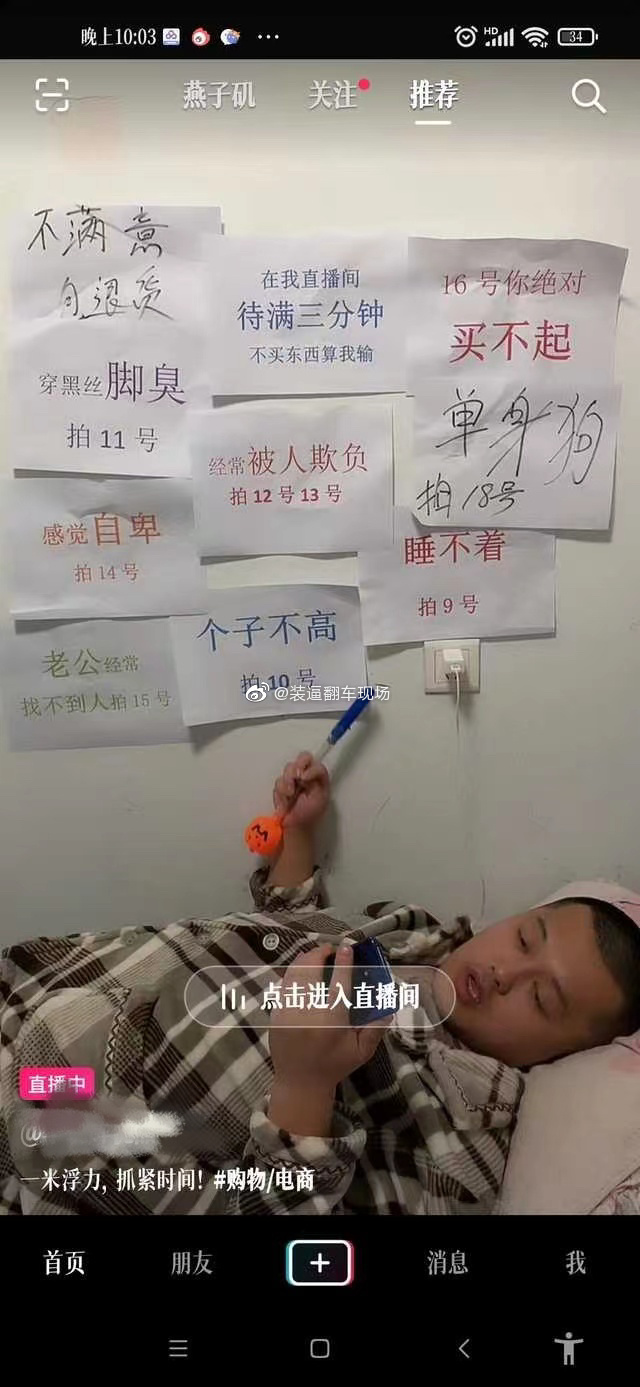 晚上10:03
HD
34
燕子矶
关注
推荐
不满意
自退货
穿黑丝脚臭
拍11号
在我直播间
待满三分钟
不买东西算我输
16号你绝对
买不起
单身狗
拍18号
经常被人欺负
拍12号13号
感觉自卑
拍14号
睡不着
拍9号
个子不高
拍10号
老公经常
找不到人拍15号
@装逼翻车现场
点击进入直播间
直播中
@
一米浮力,抓紧时间!#购物/电商
首页
朋友
消息
我